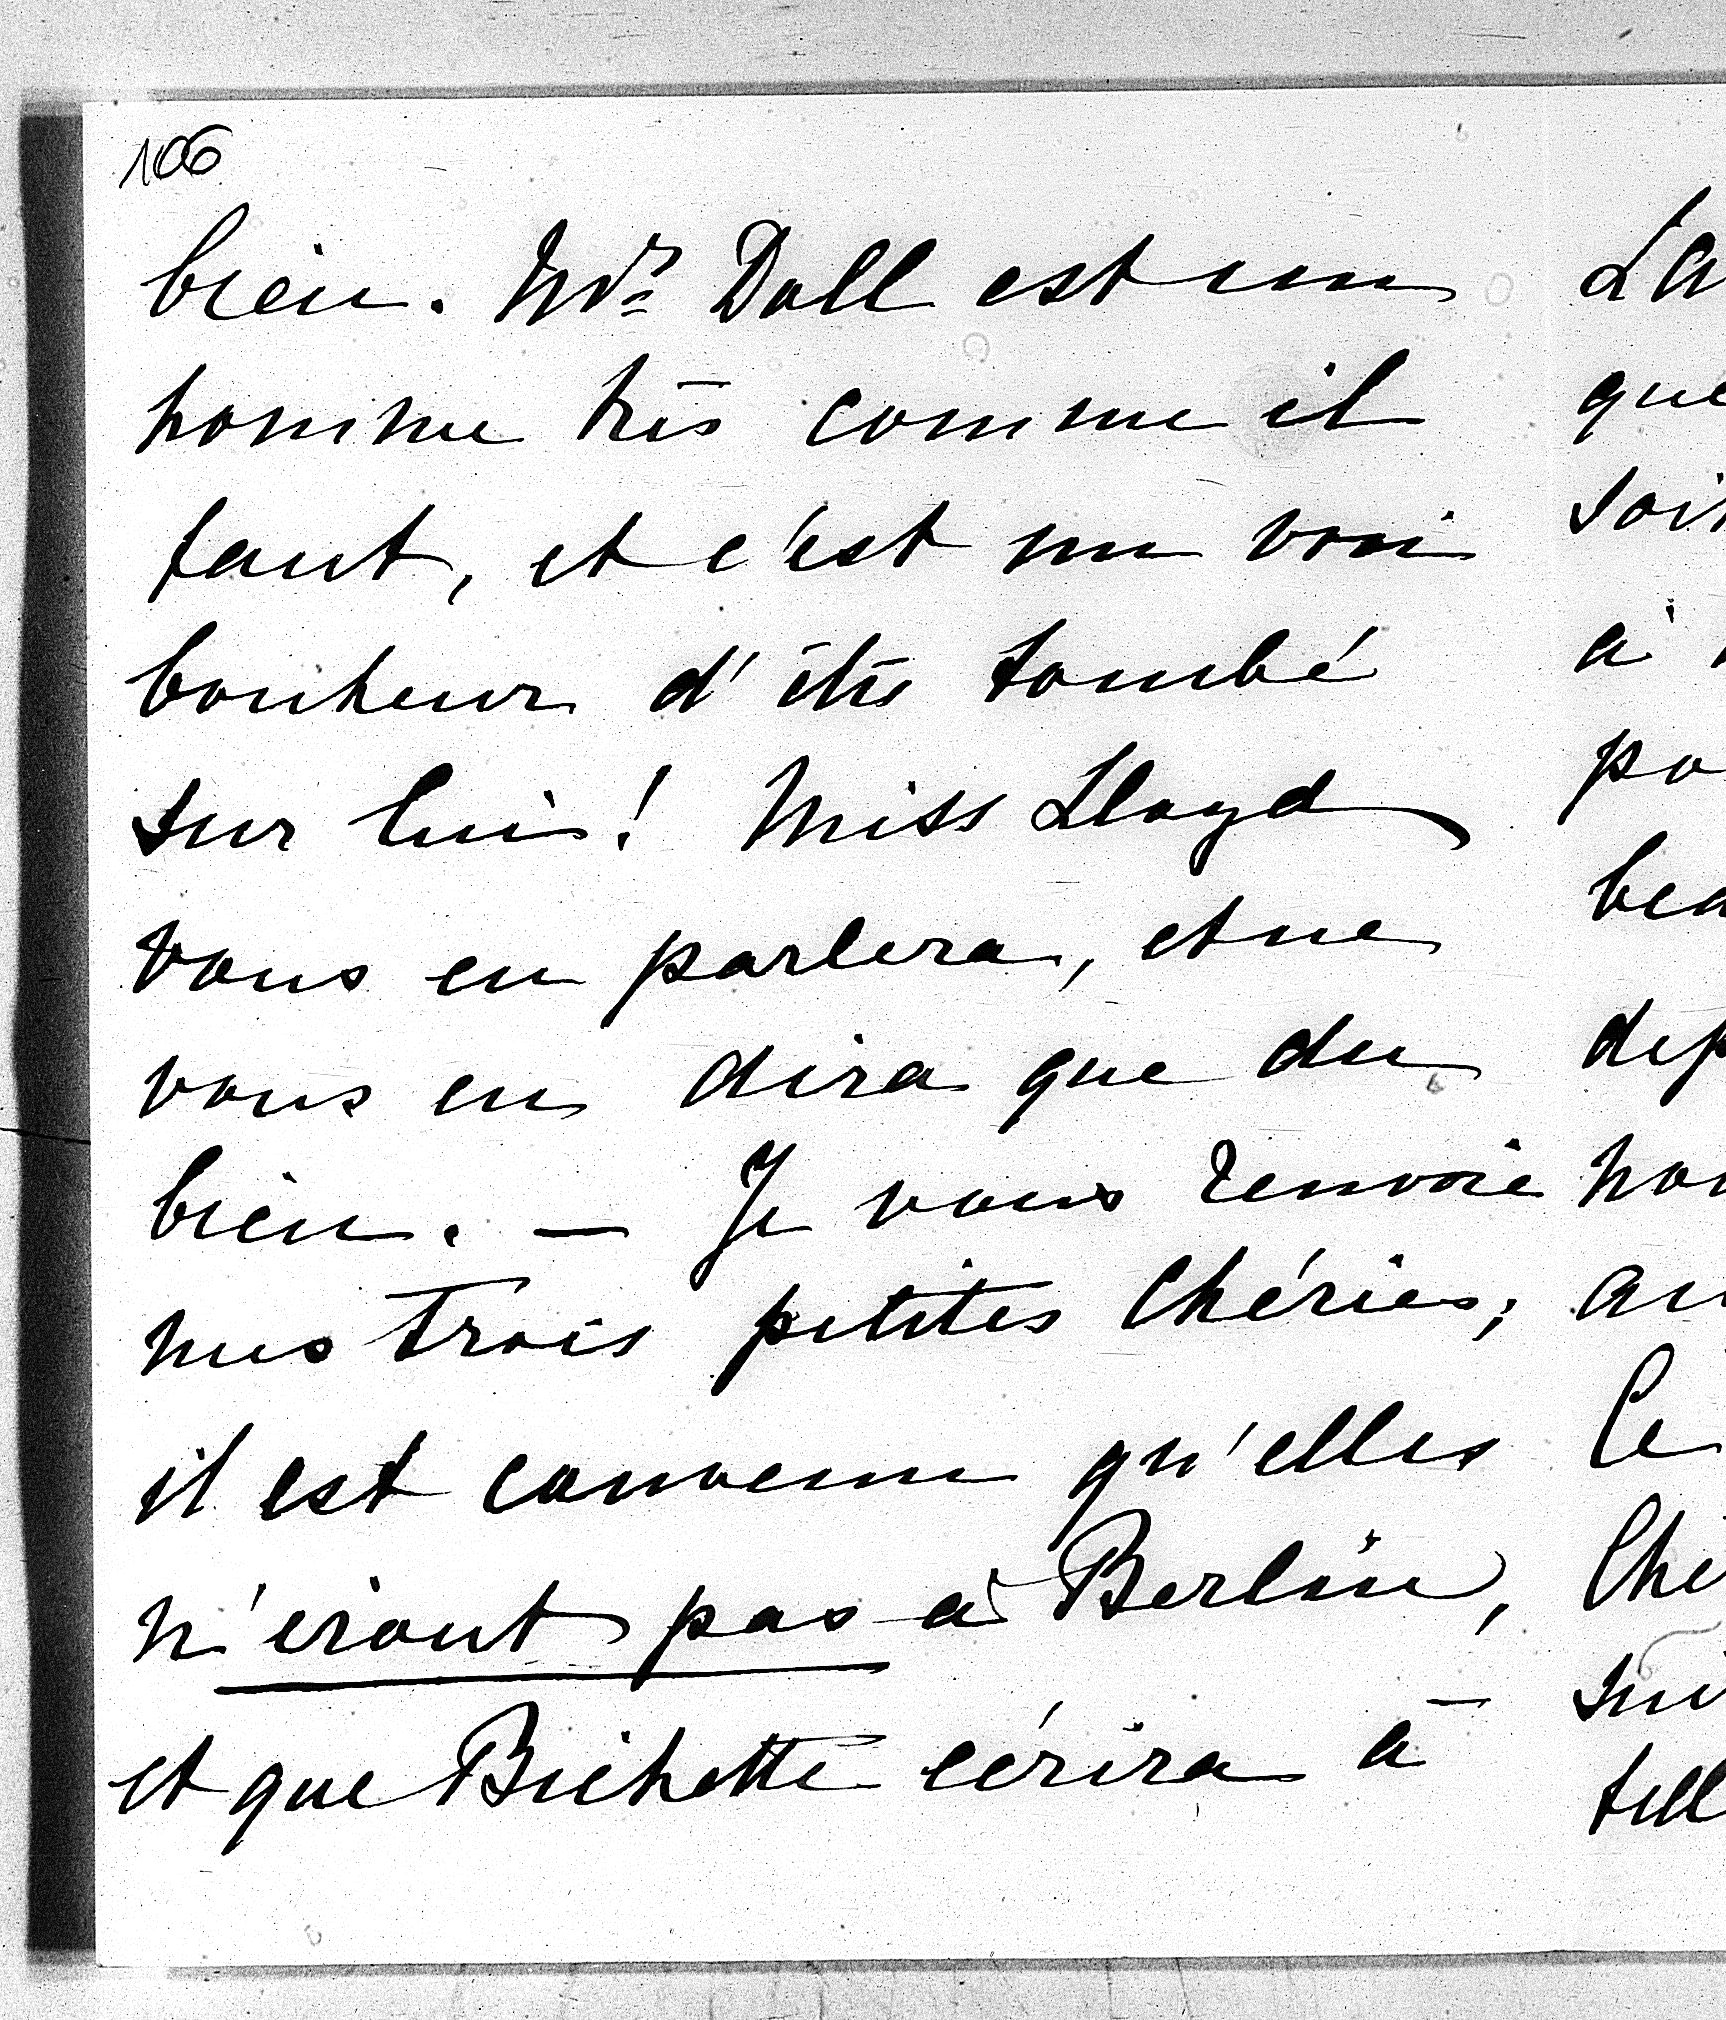 106
bien. Mr Doll est un
homme très comme il
faut, et c'est un vrai
bonheur d'être tombé
sur lui! Miss Lloyd
vous en parlera, et ne
vous en dira que du
bien. — Je vous renvoie
nos trois petites chéries;
il est convenu qu'elles
n'iront pas à Berlin,
et que Bichette écrira à
La
que
soi
à
po
bea
dep
no
au
Ce
Ché
sui
tell